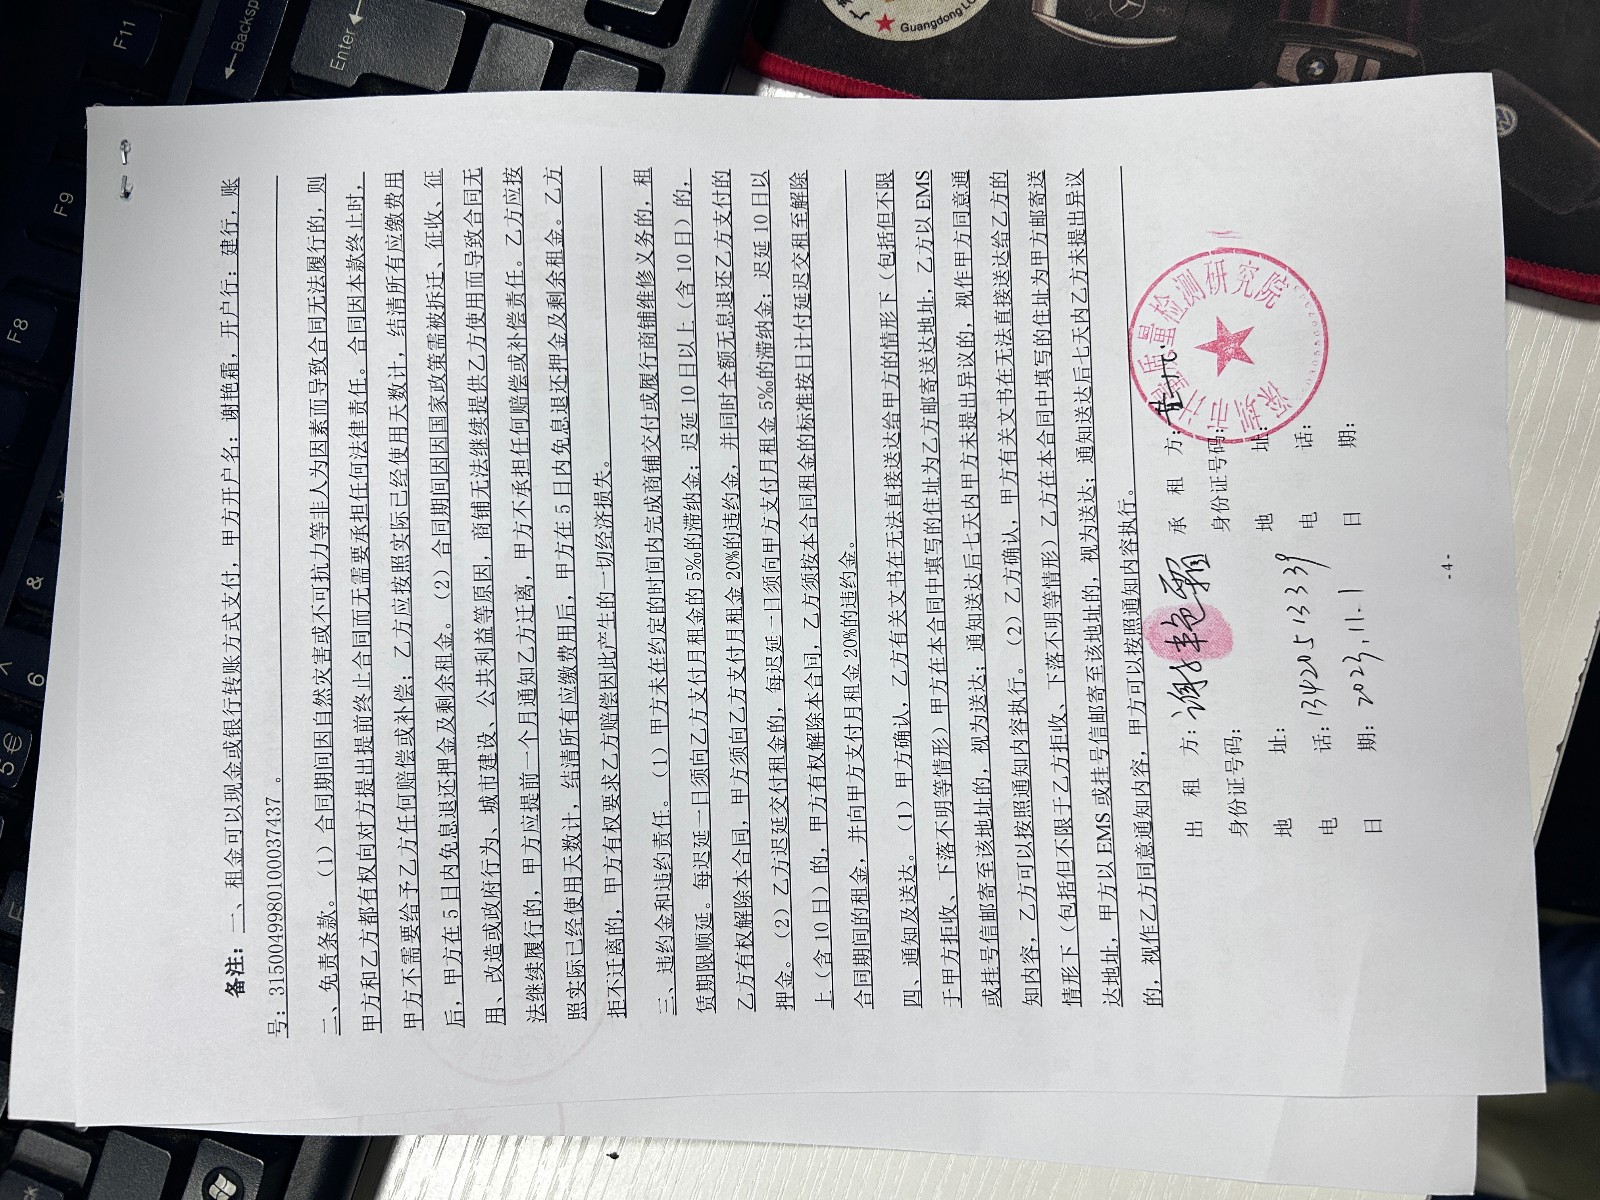 备注：一、租金可以现金或银行转账方式支付，甲方开户名：谢艳霜，开户行：建行，账
号：3150049980100037437 。
二、免责条款。（1）合同期间因自然灾害或不可抗力等非人为因素而导致合同无法履行的，则
甲方和乙方都有权向对方提出提前终止合同而无需要承担任何法律责任。合同因本款终止时，
甲方不需要给予乙方任何赔偿或补偿；乙方应按照实际已经使用天数计，结清所有应缴费用
后，甲方在 5 日内免息退还押金及剩余租金。（2）合同期间因因国家政策需被拆迁、征收、征
用、改造或政府行为、城市建设、公共利益等原因，商铺无法继续提供乙方使用而导致合同无
法继续履行的，甲方应提前一个月通知乙方迁离，甲方不承担任何赔偿或补偿责任。乙方应按
照实际已经使用天数计，结清所有应缴费用后，甲方在 5 日内免息退还押金及剩余租金。乙方
拒不迁离的，甲方有权要求乙方赔偿因此产生的一切经济损失。
三、违约金和违约责任。（1）甲方未在约定的时间内完成商铺交付或履行商铺维修义务的，租
赁期限顺延。每迟延一日须向乙方支付月租金的 5‰的滞纳金；迟延 10 日以上（含 10 日）的，
乙方有权解除本合同，甲方须向乙方支付月租金 20%的违约金，并同时全额无息退还乙方支付的
押金。（2）乙方迟延交付租金的，每迟延一日须向甲方支付月租金 5‰的滞纳金；迟延 10 日以
上（含 10 日）的，甲方有权解除本合同，乙方须按本合同租金的标准按日计付延迟交租至解除
合同期间的租金，并向甲方支付月租金 20%的违约金。
四、通知及送达。（1）甲方确认，乙方有关文书在无法直接送达给甲方的情形下（包括但不限
于甲方拒收、下落不明等情形）甲方在本合同中填写的住址为乙方邮寄送达地址，乙方以 EMS
或挂号信邮寄至该地址的，视为送达；通知送达后七天内甲方未提出异议的，视作甲方同意通
知内容，乙方可以按照通知内容执行。（2）乙方确认，甲方有关文书在无法直接送达给乙方的
情形下（包括但不限于乙方拒收、下落不明等情形）乙方在本合同中填写的住址为甲方邮寄送
达地址，甲方以 EMS 或挂号信邮寄至该地址的，视为送达；通知送达后七天内乙方未提出异议
的，视作乙方同意通知内容，甲方可以按照通知内容执行。
出 租 方：谢艳霜 承 租 方：
身份证号码： 身份证号码：
地 址： 地 址：
电 话：13420513339 电 话：
日 期：2023.11.1 日 期：
深圳市计量质量检测研究院
- 4 -
F11
Backsp
Enter
F9
F8
&
6
5
€
Guangdong